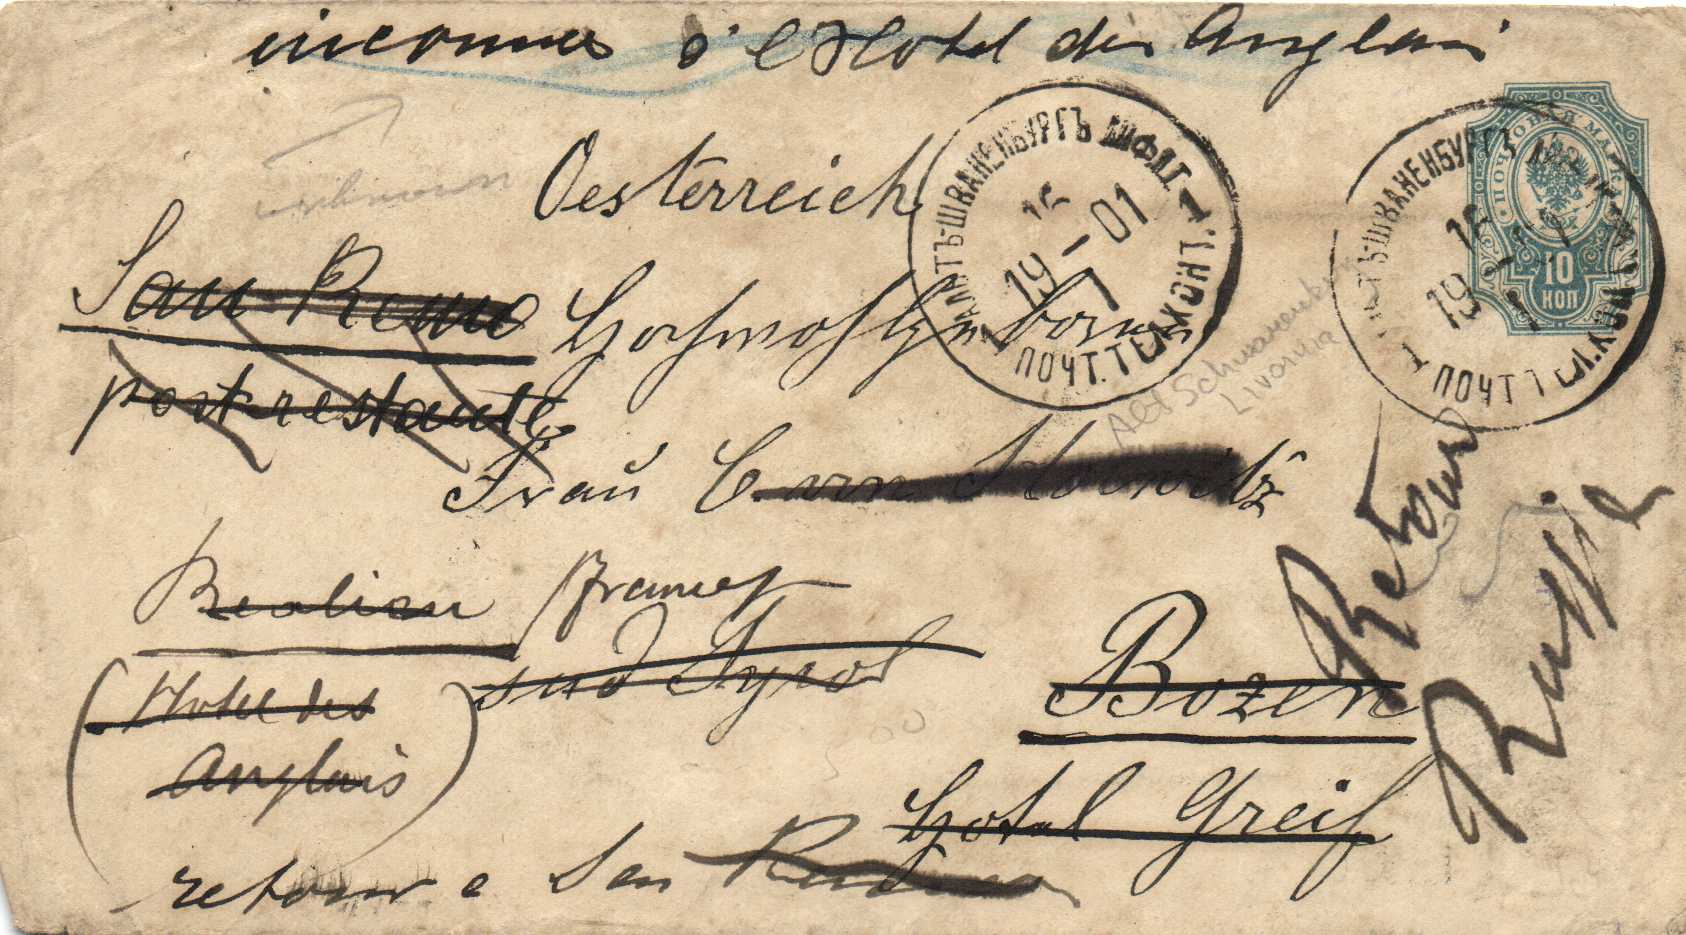 inconnue à l'Hotel des Anglais
unknown
Oesterreich
San Remo
Hochwohlgeboren
post restante
Frau C. von
Bealieu France
süd Tyrol
Bozen
Hotel des
Anglais
Hotel Greif
retour a San Remo
Retour
Russie
Alt Schwanenburg
Livonia
500
АЛТЪ-ШВАНЕНБУРГЪ ЛИФЛ.Г.
16
19 - 01
1
1 ПОЧТ.ТЕЛ.КОНТ. 1
АЛТЪ-ШВАНЕНБУРГЪ
16
19
1 ПОЧТ.ТЕЛ.КОНТ.
ПОЧТОВАЯ МАРКА
10
КОП